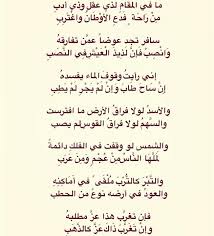 ما في المقام لذي عقل وذي أدب
من راحة فدع الأوطان واغترب
سافر تجد عوضاً عمن تفارقه
وانصب فإن لذيذ العيش في النصب
إني رأيت وقوف الماء يفسده
إن ساح طاب وإن لم يجر لم يطب
والأسد لولا فراق الأرض ما افترست
والسهم لولا فراق القوس لم يصب
والشمس لو وقفت في الفلك دائمة
لملها الناس من عجم ومن عرب
والتبر كالترب ملقى في أماكنه
والعود في أرضه نوع من الحطب
فإن تغرب هذا عز مطلبه
وإن تغرب ذاك عز كالذهب